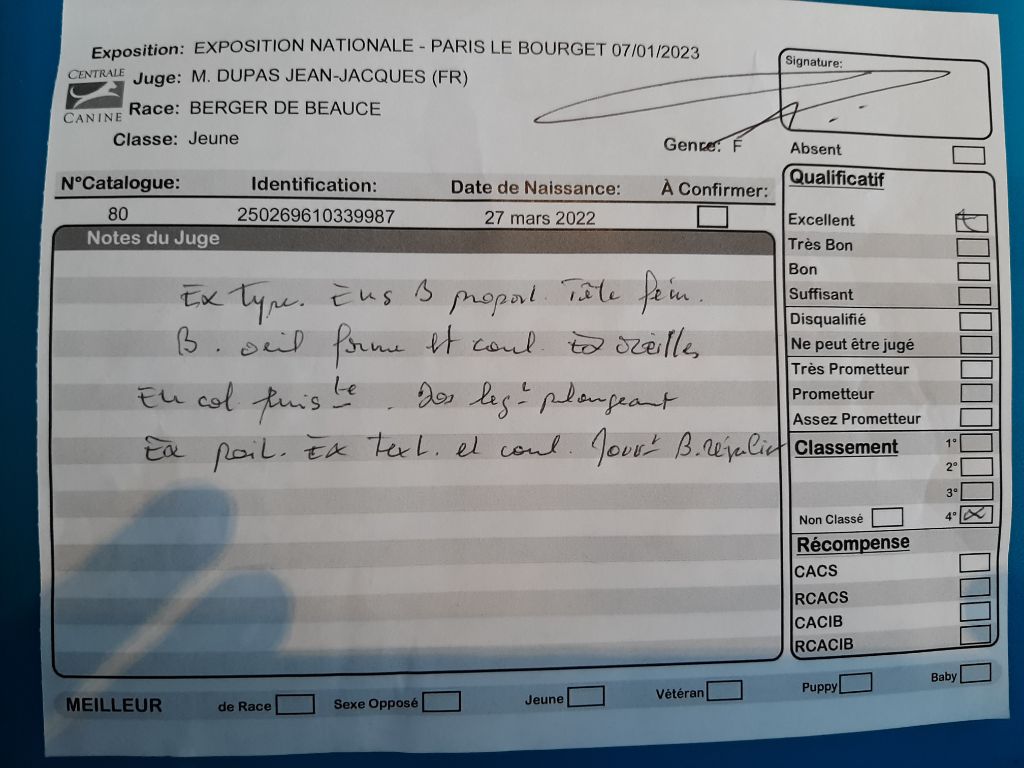 Exposition: EXPOSITION NATIONALE - PARIS LE BOURGET 07/01/2023
CENTRALE CANINE
Juge: M. DUPAS JEAN-JACQUES (FR)
Race: BERGER DE BEAUCE
Classe: Jeune
Genre: F
Signature:
Absent
N°Catalogue: Identification: Date de Naissance: À Confirmer:
80 250269610339987 27 mars 2022
Notes du Juge
Ex type. Ens B proport. Tête fém.
B. oeil forme et coul. Ex oreilles
Encol puis te. Dos leg t plongeant
Ex poit. Ex text. et coul. B. régulier
Qualificatif
Excellent
Très Bon
Bon
Suffisant
Disqualifié
Ne peut être jugé
Très Prometteur
Prometteur
Assez Prometteur
Classement 1°
2°
3°
Non Classé 4°
Récompense
CACS
RCACS
CACIB
RCACIB
MEILLEUR de Race Sexe Opposé Jeune Vétéran Puppy Baby